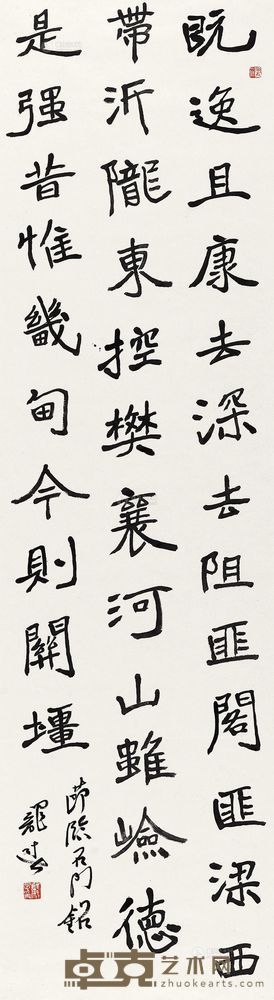 既逸且康去深去阻匪閣匪梁西
帶汧隴東控樊襄河山雖嶮德
是强昔惟畿甸今則關壃
節臨石門銘
卓克艺术网
zhuokearts.com